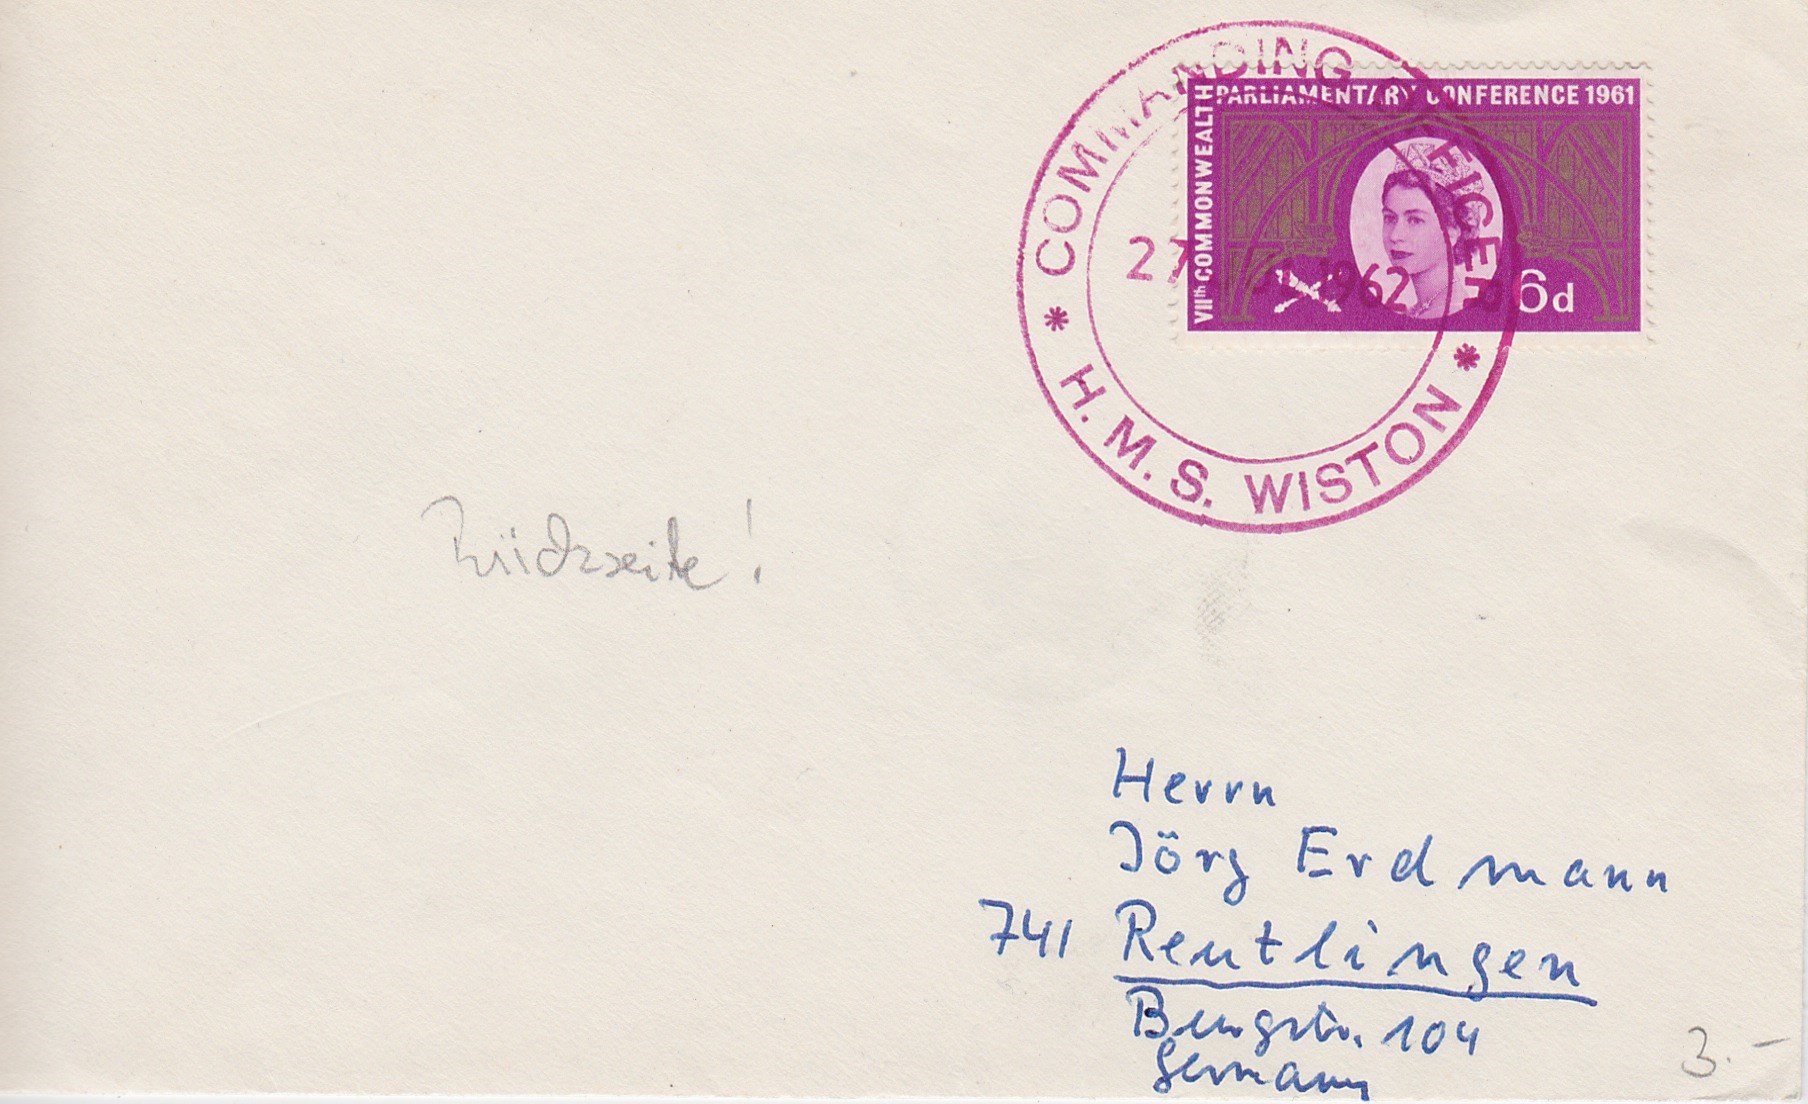 * COMMANDING OFFICER *
H.M.S. WISTON
27 1962
VIIth COMMONWEALTH
PARLIAMENTARY CONFERENCE 1961
6d
Rückseite!
Herrn
Jörg Erdmann
741 Reutlingen
104
Germany
3.-